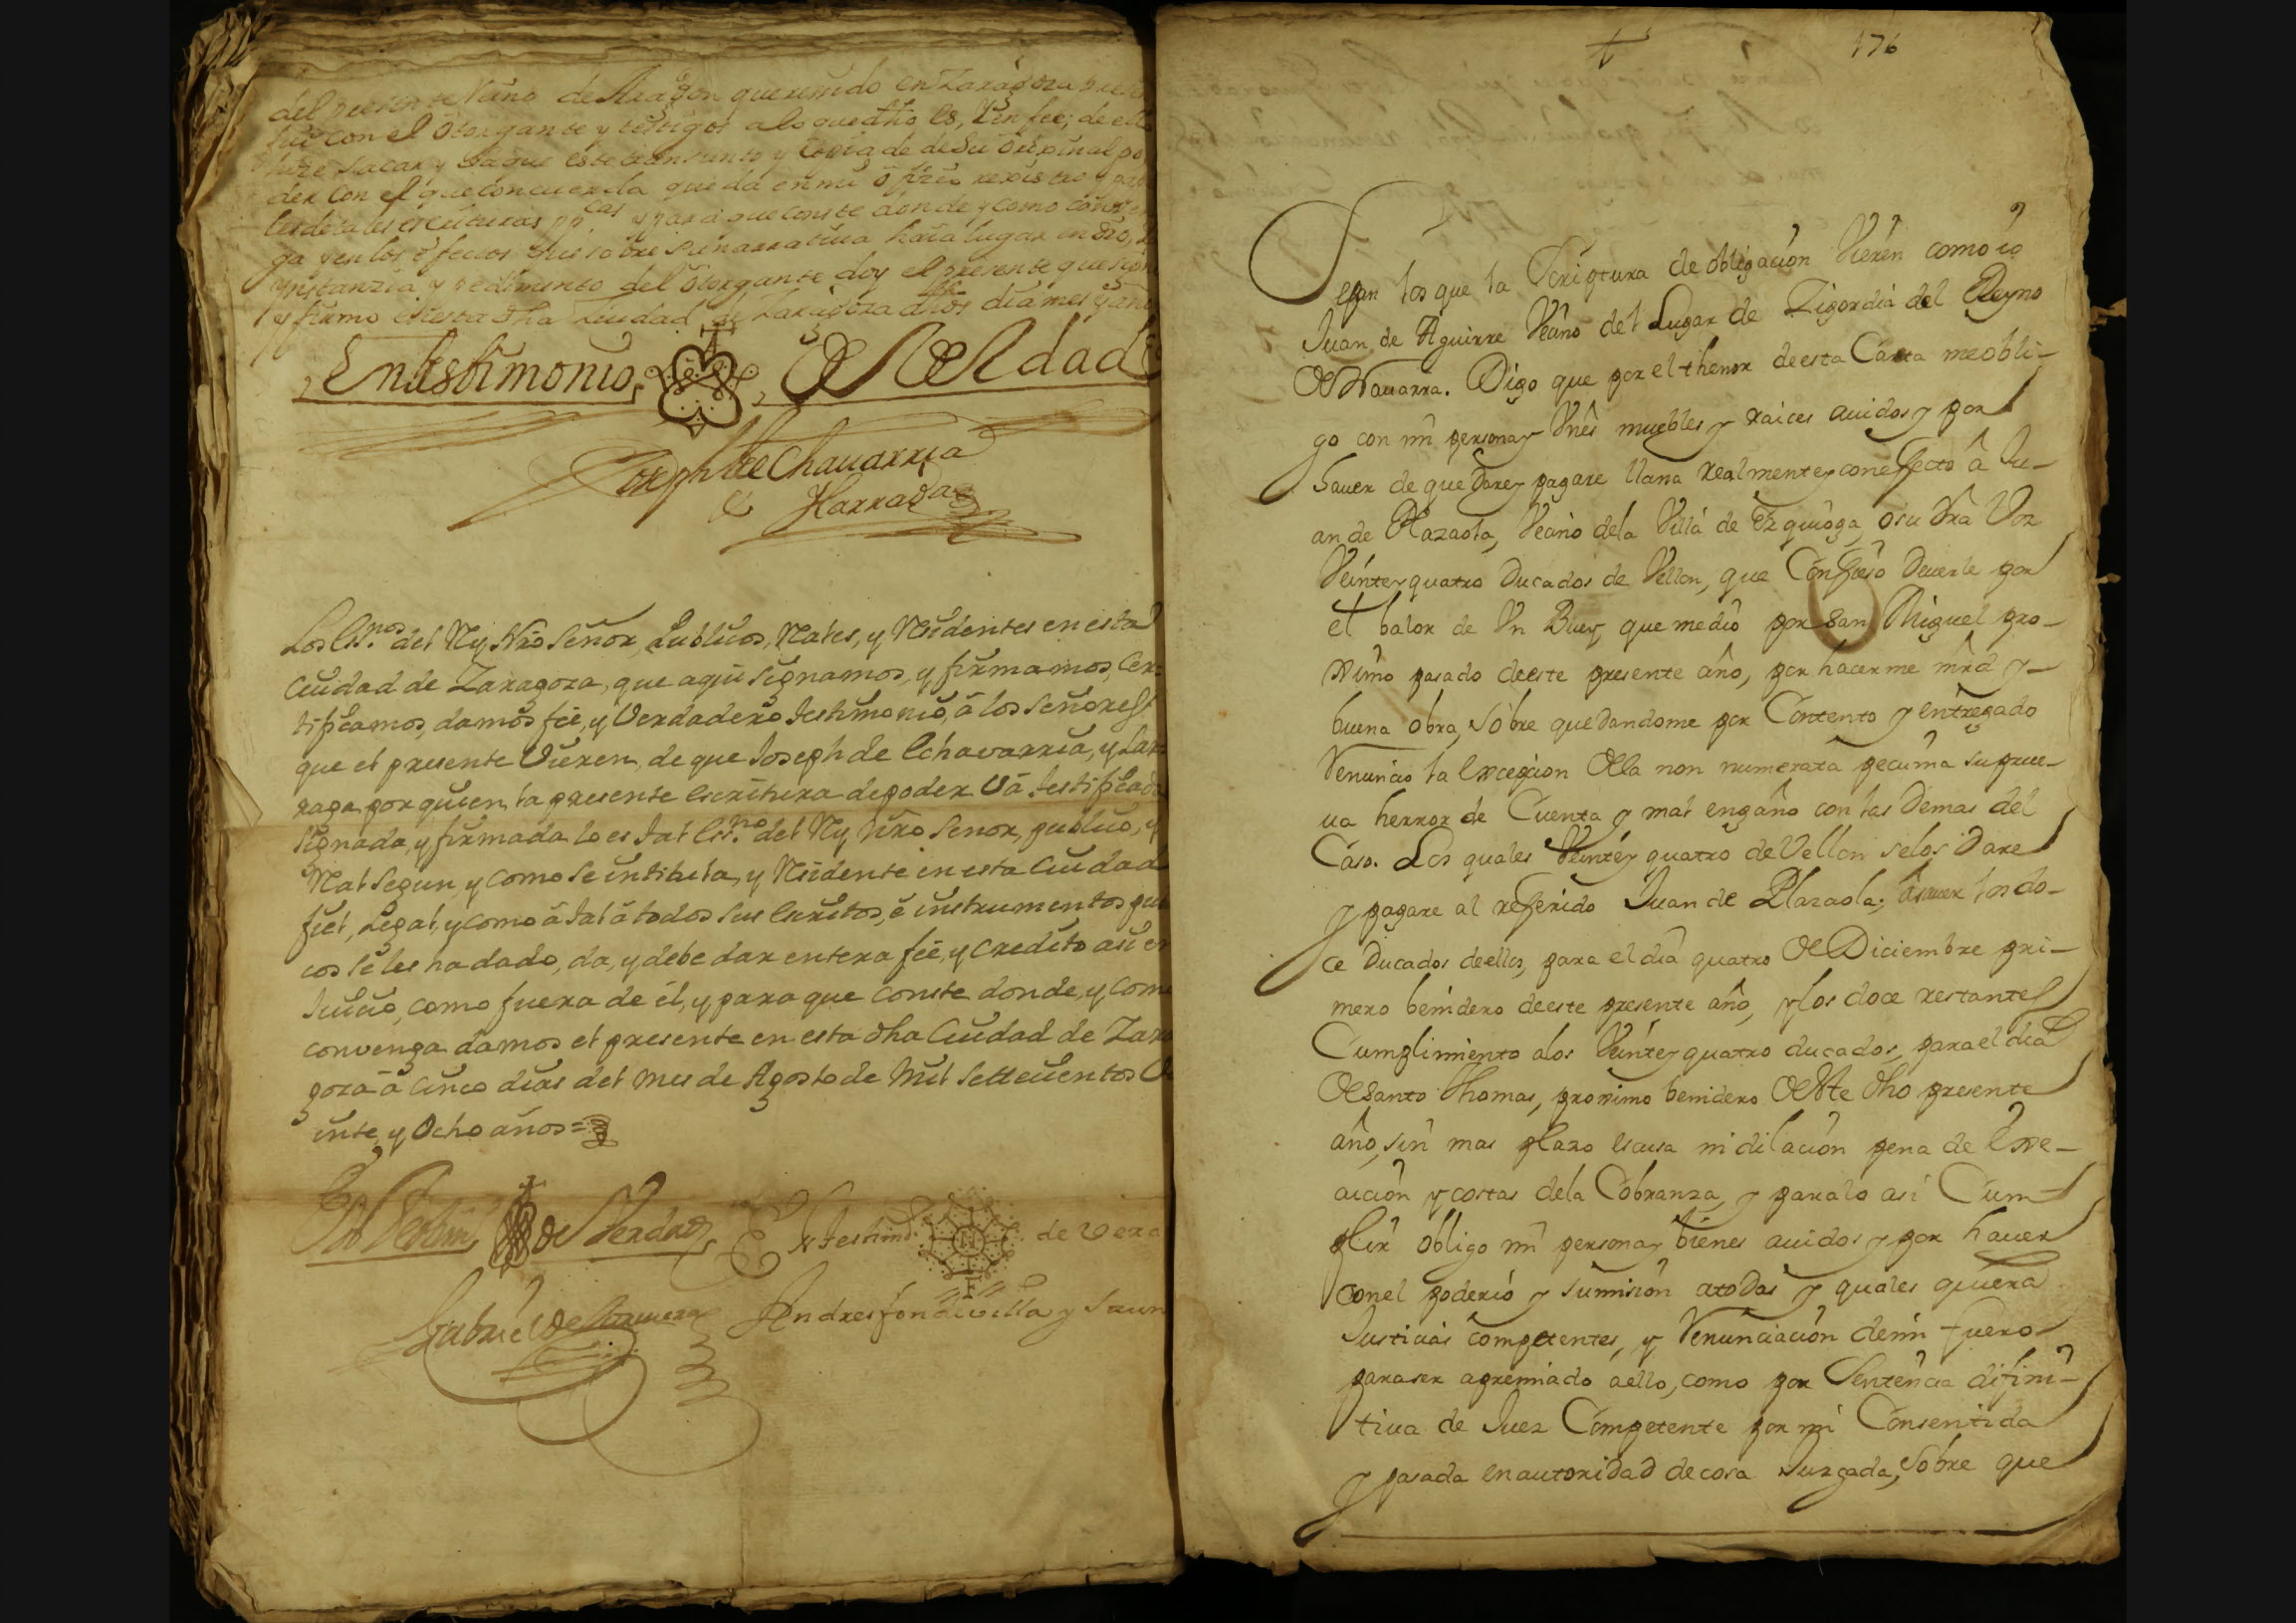 del preſente Reino de Aragon que resido en Zaragoza
fui con el otorgante y testigos a lo que dho es, y en fee; de ello
hize sacar y saque este transunto y copia de su original po-
der con el que concuerda que da en mi ofizio rexistro y
les de tales escrituras pp.cas y para que conste donde y como conven
ga y en los efectos que sobre su narratiua haia lugar en dro,
ynstanzia y pedimento del otorgante doy el presente que signo
y firmo en esta dha Ciudad de Zaragoza dhos dia mes y año
En testimonio de Verdad
Joseph de Chauarria
y Larraga
Los Ess.nos del Rey Nrō Señor, Publicos, Rales, y Residentes en esta
Ciudad de Zaragoza, que aqui signamos, y firmamos, Cer-
tificamos, damos feè, y Verdadero testimonio, à los señores
que el presente Vieren, de que Joseph de Echavarria, y Lar-
raga por quien la presente escritura de poder Và testificada
signada, y firmada lo es tal Ess.no del Rey nrō Señor, publico, y
Real segun, y como se intitula, y Residente en esta Ciudad
fiel, Legal, y como à tal à todos sus escritos, è instrumentos publi
cos se les ha dado, da, y debe dar entera feè, y credito asi en
Juicio, como fuera de èl, y para que conste donde, y como
convenga damos el presente en esta dha Ciudad de Zara
goza à cinco dias del mes de Agosto de Mil Settecientos Ve
inte, y Ocho años=
En Testim.o de Verdad, En Testim.o de Verd
Gabriel de Andres fondevilla y
176
Sepan los que la Scriptura de obligación Vieren como io
Juan de Aguirre Vezino del Lugar de Zigordia del Reyno
de Nauarra. Digo que por el thenor de esta Carta me obli-
go con mi persona y Vnes muebles y raices auidos y por
hauer de que dare y pagare llana realmente y con effecto â Ju-
an de Plazaola, Vecino de la Villa de Ezquioga, o su dra Voz
Veinte y quatro Ducados de Vellon, que Confieso Deuerle por
el balor de Vn Buey que me dió por San Miguel pro-
ximo pasado de este presente año, por hacerme mrd y-
buena obra, sobre que dandome por Contento y entregado
Renuncio la Excepcion de la non numerata pecunia su prue-
ua herror de Cuenta y mal engaño con las Demas del
Caso. Los quales Veinte y quatro de Vellon se los Dare
y pagare al referido Juan de Plazaola; à sauer los do-
ce Ducados de ellos, para el dia quatro de Diciembre pri-
mero benidero de este presente año, y los doce restantes
Cumplimiento a los Veinte y quatro ducados, para el dia
de Santo Thomas, proximo benidero de este dho presente
año, sin mas plazo escusa ni dilación pena de Exe-
cucion y costas de la Cobranza, y para lo asi Cum-
plir obligo mi persona y bienes auidos y por hauer
con el poderio y sumisión a todas y quales quiera
Justicias competentes, y Renunciación de mi fuero
para ser apremiado a ello, como por Sentencia difini-
tiua de Juez Competente por mi Consentida
y pasada en autoridad de cosa Juzgada, sobre que